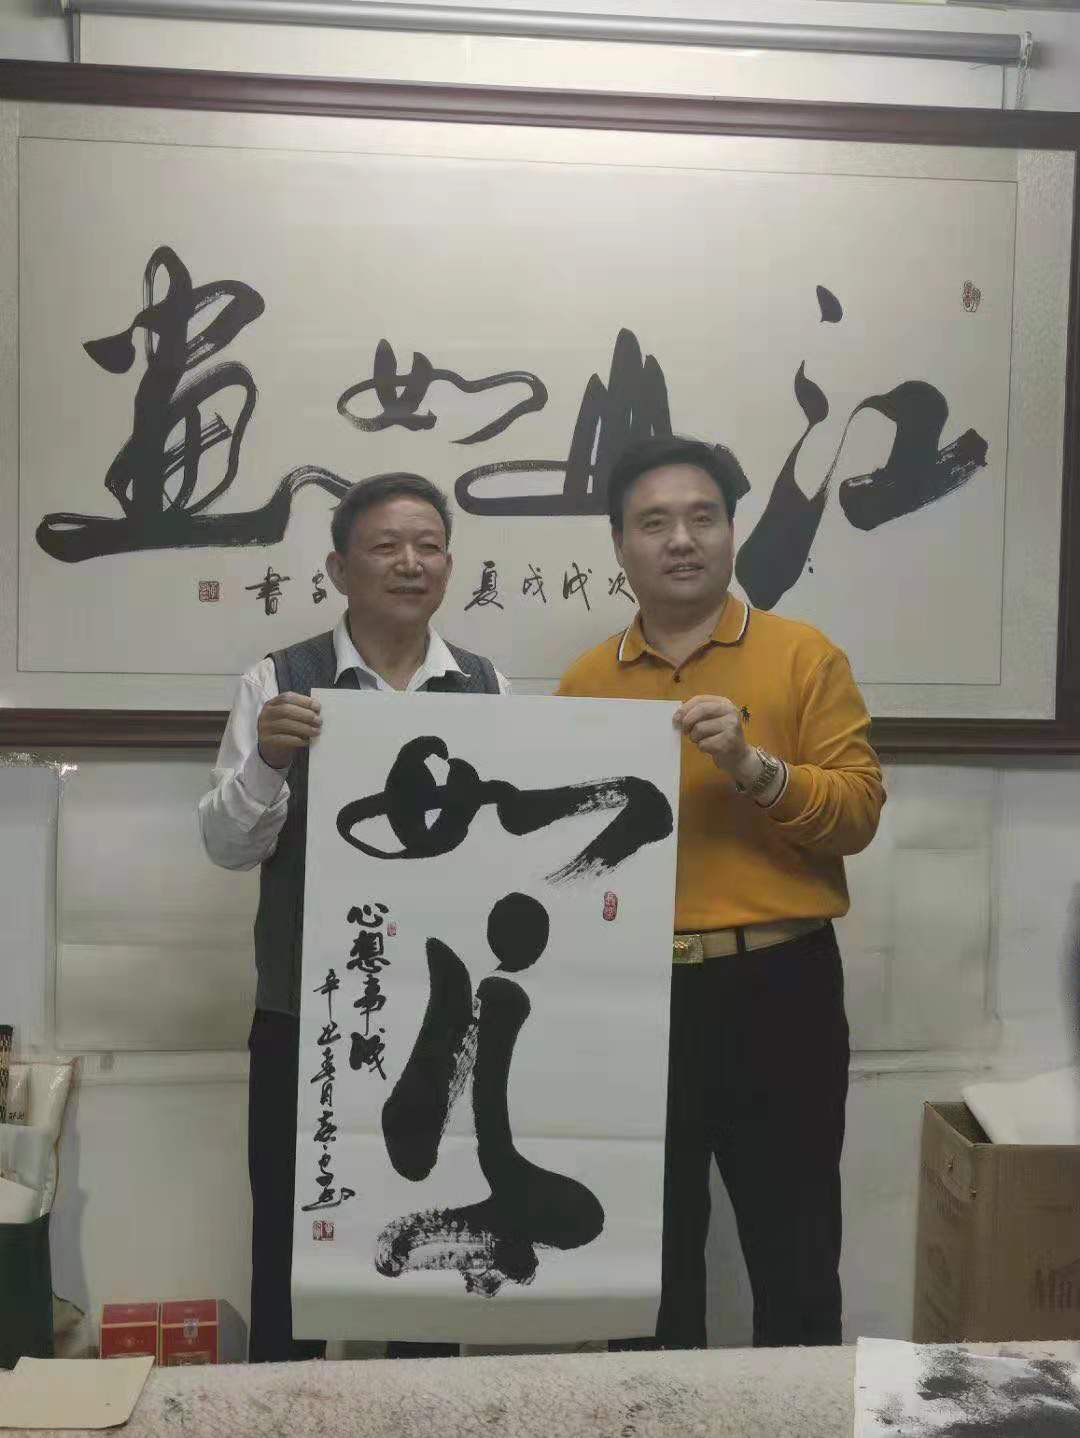 江山如畫
次戊戌夏
書
如意
心想事成
辛丑春月